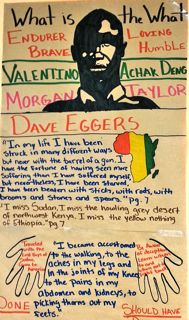 What is the What
ENDURER LOVING
BRAVE Humble
VALENTINO ACHAK DENG
MORGAN TAYLOR
DAVE EGGERS
"In my life I have been
struck in many different ways
but never with the barrel of a gun. I
have the fortune of having seen more
suffering than I have suffered myself,
but nevertheless, I have been starved,
I have been beaten with sticks, with rods, with
brooms and stones and spears." pg. 7
"I miss Sudan, I miss the howling grey desert
of northwest Kenya. I miss the yellow nothing
of Ethiopia." pg 7
"I became accustomed
to the walking, to the
aches in my legs and
in the joints of my knees,
to the pains in my
abdomen and kidneys, to
picking thorns out my
feets."
DONE
SHOULD HAVE